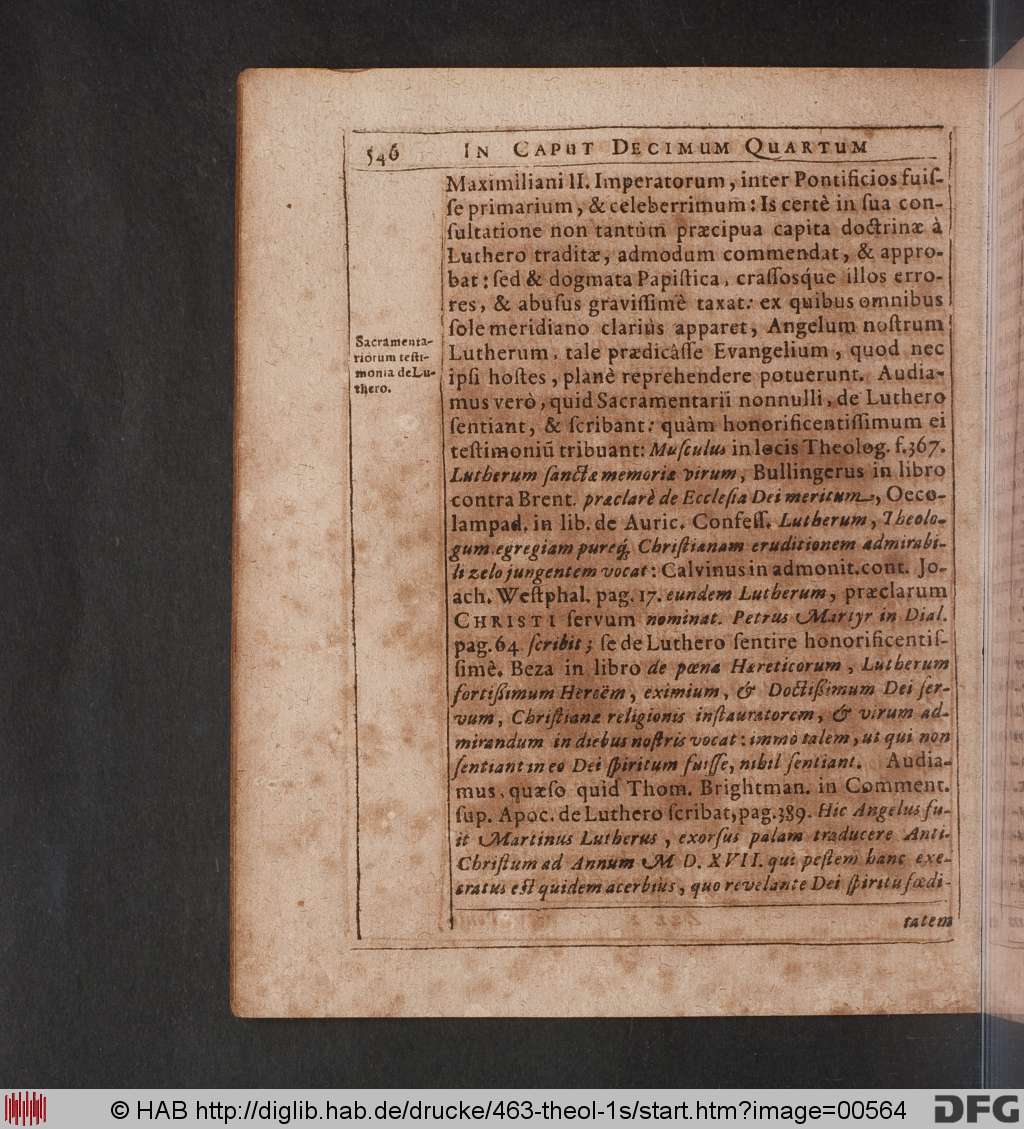 546 IN CAPUT DECIMUM QUARTUM
Maximiliani II. Imperatorum, inter Pontificios fuiſ-
ſe primarium, & celeberrimum: Is certè in ſua con-
ſultatione non tantùm præcipua capita doctrinæ à
Luthero traditæ, admodum commendat, & appro-
bat: ſed & dogmata Papiſtica, craſſosq́ue illos erro-
res, & abuſus graviſſimè taxat: ex quibus omnibus
ſole meridiano clariùs apparet, Angelum noſtrum
Lutherum, tale prædicâſſe Evangelium, quod nec
ipſi hoſtes, planè reprehendere potuerunt. Audia-
mus verò, quid Sacramentarii nonnulli, de Luthero
ſentiant, & ſcribant: quàm honorificentiſſimum ei
teſtimoniū tribuant: Muſculus in locis Theolog. f. 367.
Lutherum ſanctæ memoriæ virum, Bullingerus in libro
contra Brent. præclarè de Eccleſia Dei meritum, Oeco-
lampad. in lib. de Auric. Confeſſ. Lutherum, Theolo-
gum egregiam pureq́; Chriſtianam eruditionem admirabi-
li zelo jungentem vocat: Calvinus in admonit. cont. Jo-
ach. Weſtphal. pag. 17. eundem Lutherum, præclarum
CHRISTI ſervum nominat. Petrus Martyr in Dial.
pag. 64. ſcribit; ſe de Luthero ſentire honorificentiſ-
ſimè. Beza in libro de pœna Hæreticorum, Lutherum
fortiſſimum Heroëm, eximium, & Doctiſſimum Dei ſer-
vum, Chriſtianæ religionis inſtauratorem, & virum ad-
mirandum in diebus noſtris vocat: immò talem, ut qui non
ſentiant in eo Dei ſpiritum fuiſſe, nihil ſentiant. Audia-
mus, quæſo quid Thom. Brightman. in Comment.
ſup. Apoc. de Luthero ſcribat, pag. 389. Hic Angelus fu-
it Martinus Lutherus, exorſus palam traducere Anti-
Chriſtum ad Annum M D. XVII. qui peſtem hanc exe-
cratus eſt quidem acerbiùs, quo revelante Dei ſpiritu fœdi-
tatem
Sacramenta-
riorum teſti-
monia de Lu-
thero.
© HAB http://diglib.hab.de/drucke/463-theol-1s/start.htm?image=00564
DFG